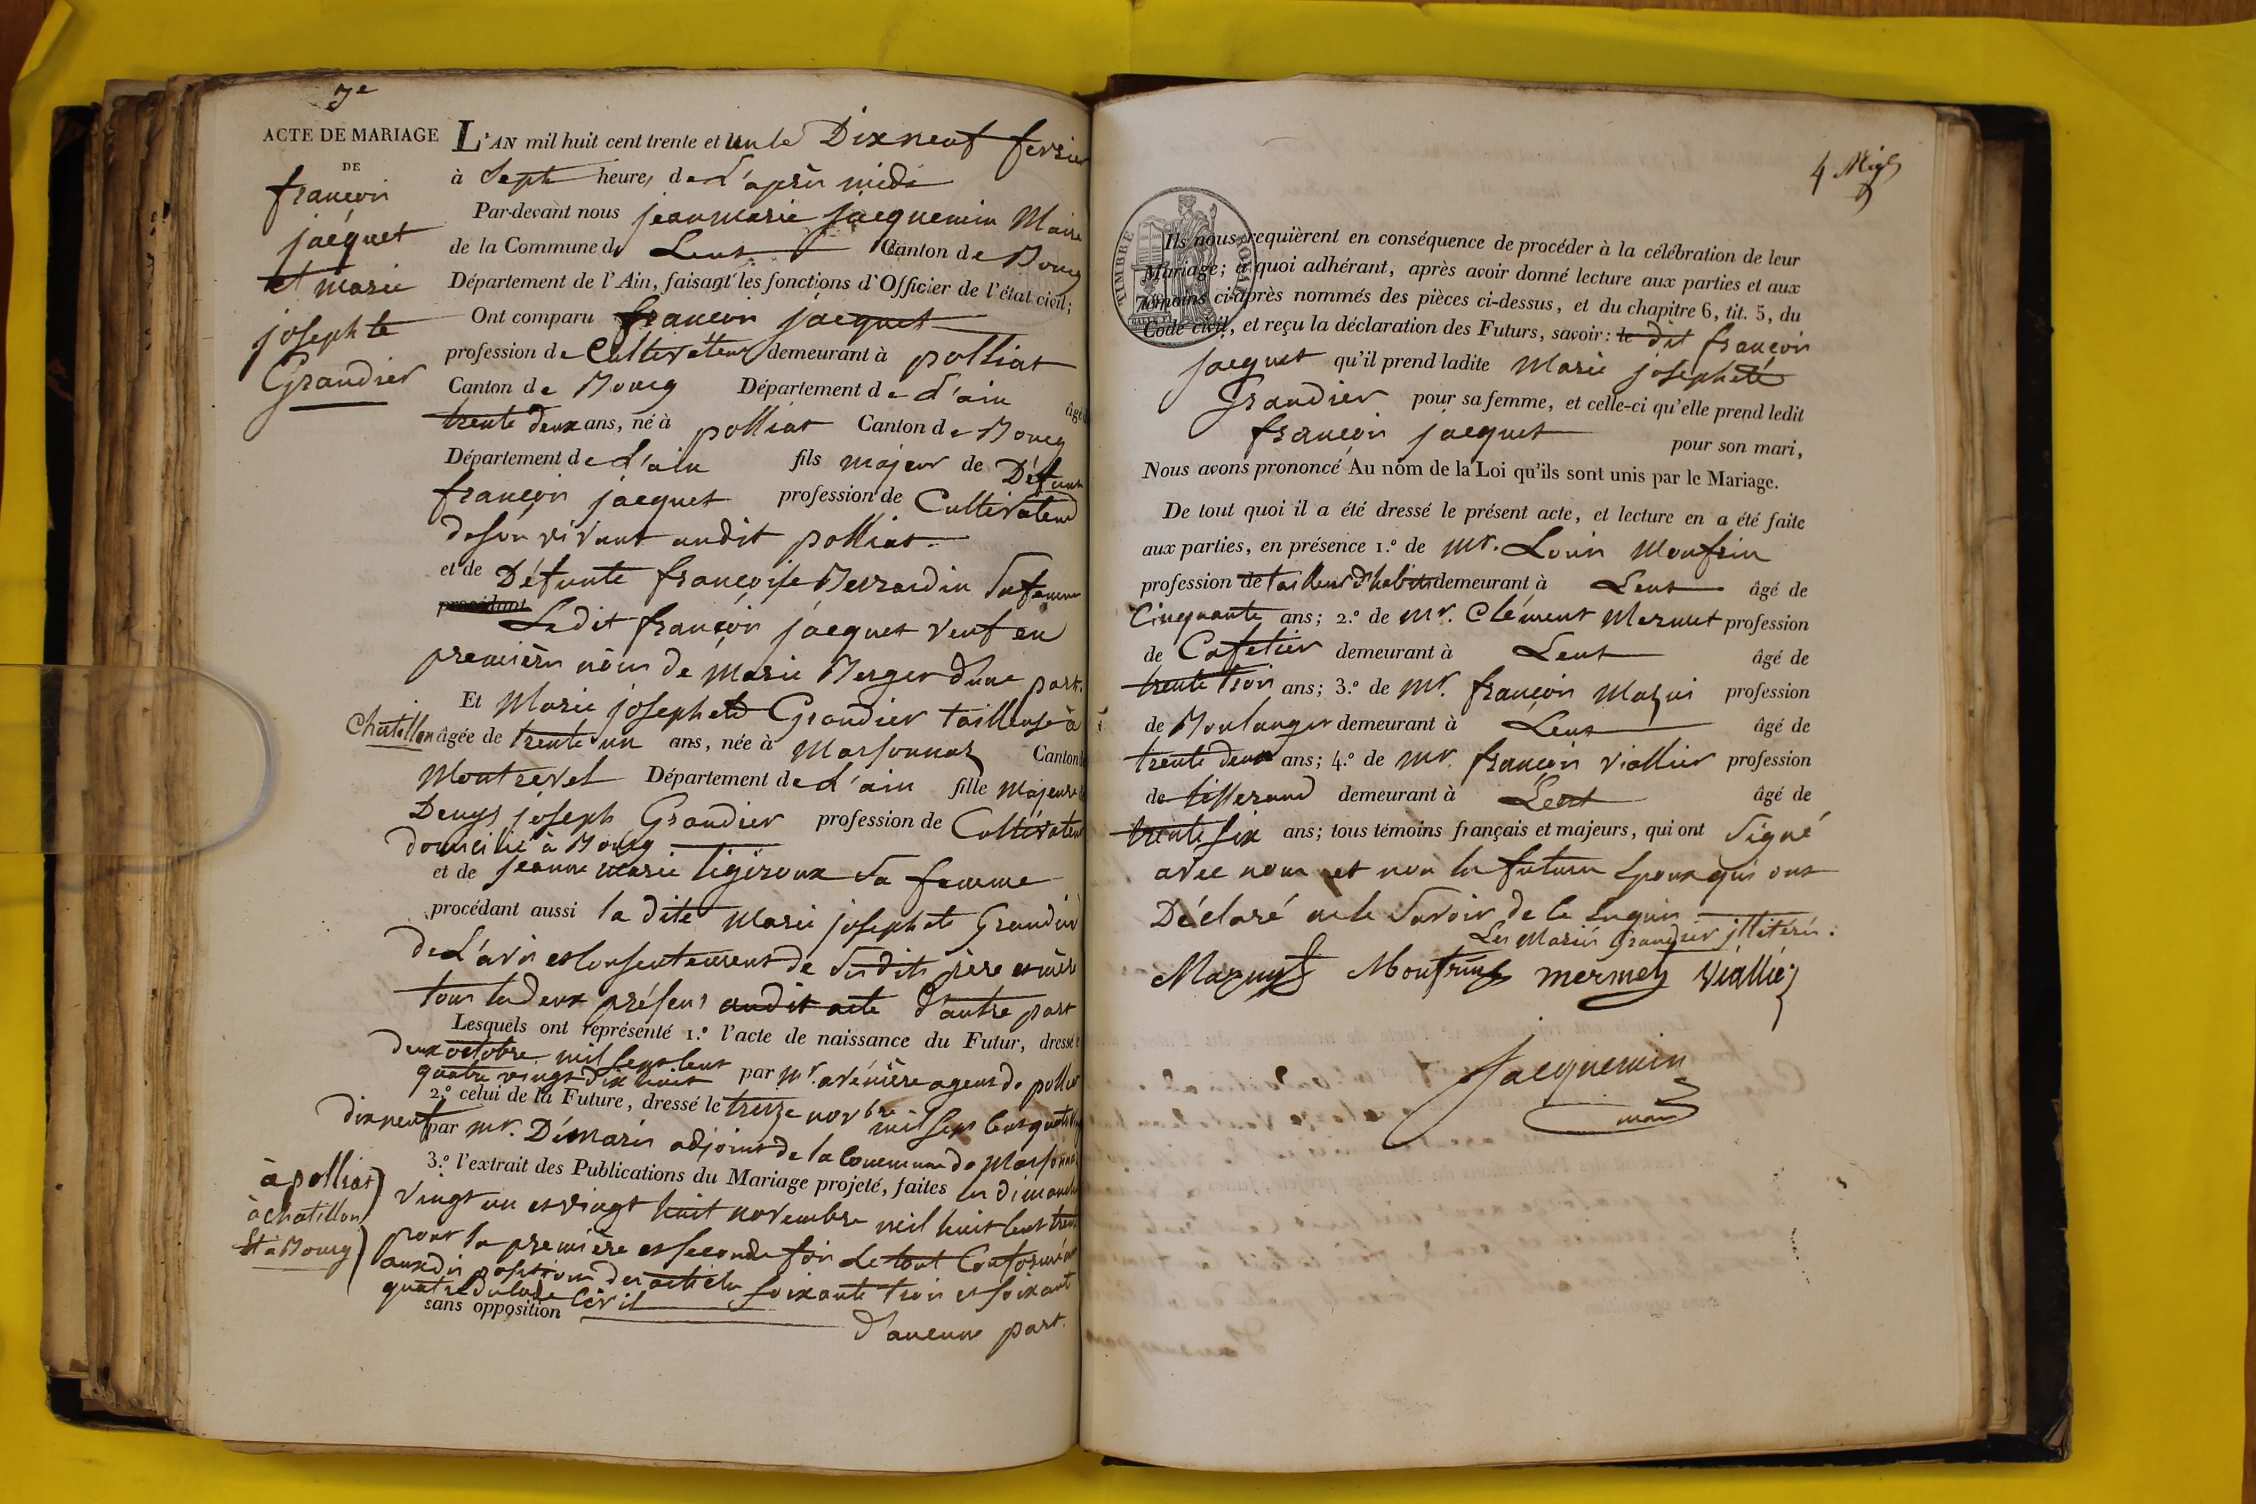 7e
ACTE DE MARIAGE
DE
françois
jacquet
et marie
josephte
Grandier
L'AN mil huit cent trente et un le Dix neuf fevrier
à Sept heures de L'après midi
Par-devant nous jean marie jacquemin Maire
de la Commune de Lent Canton de Bourg
Département de l'Ain, faisant les fonctions d'Officier de l'état civil;
Ont comparu françois jacquet
profession de Cultivateur demeurant à polliat
Canton de Bourg Département de L'ain âgé de
trente deux ans, né à polliat Canton de Bourg
Département de L'ain fils majeur de Défunt
françois jacquet profession de Cultivateur
de son vivant audit polliat
et de Défunte françoise Berrardin Sa femme
procédant
Ledit françois jacquet veuf en
premières nôces de Marie Berger d'une part.
Et Marie josephte Grandier tailleuse à
Chatillon âgée de trente un ans, née à Marsonnaz Canton de
Montrevel Département de L'ain fille majeure de
Denys joseph Grandier profession de Cultivateur
domicilié à Bourg
et de jeanne marie ligeroux sa femme
procédant aussi la dite Marie josephte Grandier
de L'avis et Consentement de Sesdits père et mère
tous les deux présens audit acte d'autre part
Lesquels ont représenté 1.º l'acte de naissance du Futur, dressé le
deux octobre mil Sept Cent
quatre vingt dix huit par Mr. avénière agent de polliat
2.º celui de la Future, dressé le treize novbre mil Sept Cent quatre vingt
dix neuf par Mr. Démaris adjoint de la Commune de Marsonnaz
3.º l'extrait des Publications du Mariage projeté, faites les dimanches
à polliat
à chatillon
et à Bourg
vingt un et vingt huit novembre mil huit cent trente
pour la première et seconde fois Le tout Conformément
aux dispositions des articles Soixante trois et soixante
quatre du Code Civil
sans opposition d'aucune part.
4 Mige
TIMBRE ROYAL
Ils nous requièrent en conséquence de procéder à la célébration de leur
Mariage; à quoi adhérant, après avoir donné lecture aux parties et aux
témoins ci-après nommés des pièces ci-dessus, et du chapitre 6, tit. 5, du
Code civil, et reçu la déclaration des Futurs, savoir: le dit françois
jacquet qu'il prend ladite Marie josephte
Grandier pour sa femme, et celle-ci qu'elle prend ledit
françois jacquet pour son mari,
Nous avons prononcé Au nom de la Loi qu'ils sont unis par le Mariage.
De tout quoi il a été dressé le présent acte, et lecture en a été faite
aux parties, en présence 1.º de Mr. Louis Monfrin
profession de tailleur d'habits demeurant à Lent âgé de
Cinquante ans; 2.º de Mr. Clément Mermet profession
de Cafetier demeurant à Lent âgé de
trente trois ans; 3.º de Mr. françois Mazui profession
de Boulanger demeurant à Lent âgé de
trente deux ans; 4.º de Mr. françois viallier profession
de tisserand demeurant à Lent âgé de
trente six ans; tous témoins français et majeurs, qui ont Signé
avec nous et non les futurs Epoux qui ont
Déclaré ne le Savoir de ce Enquis
Les Mariés Grandier illitérés.
Mazuy Monfrin mermet Viallié
Jacquemin
maire